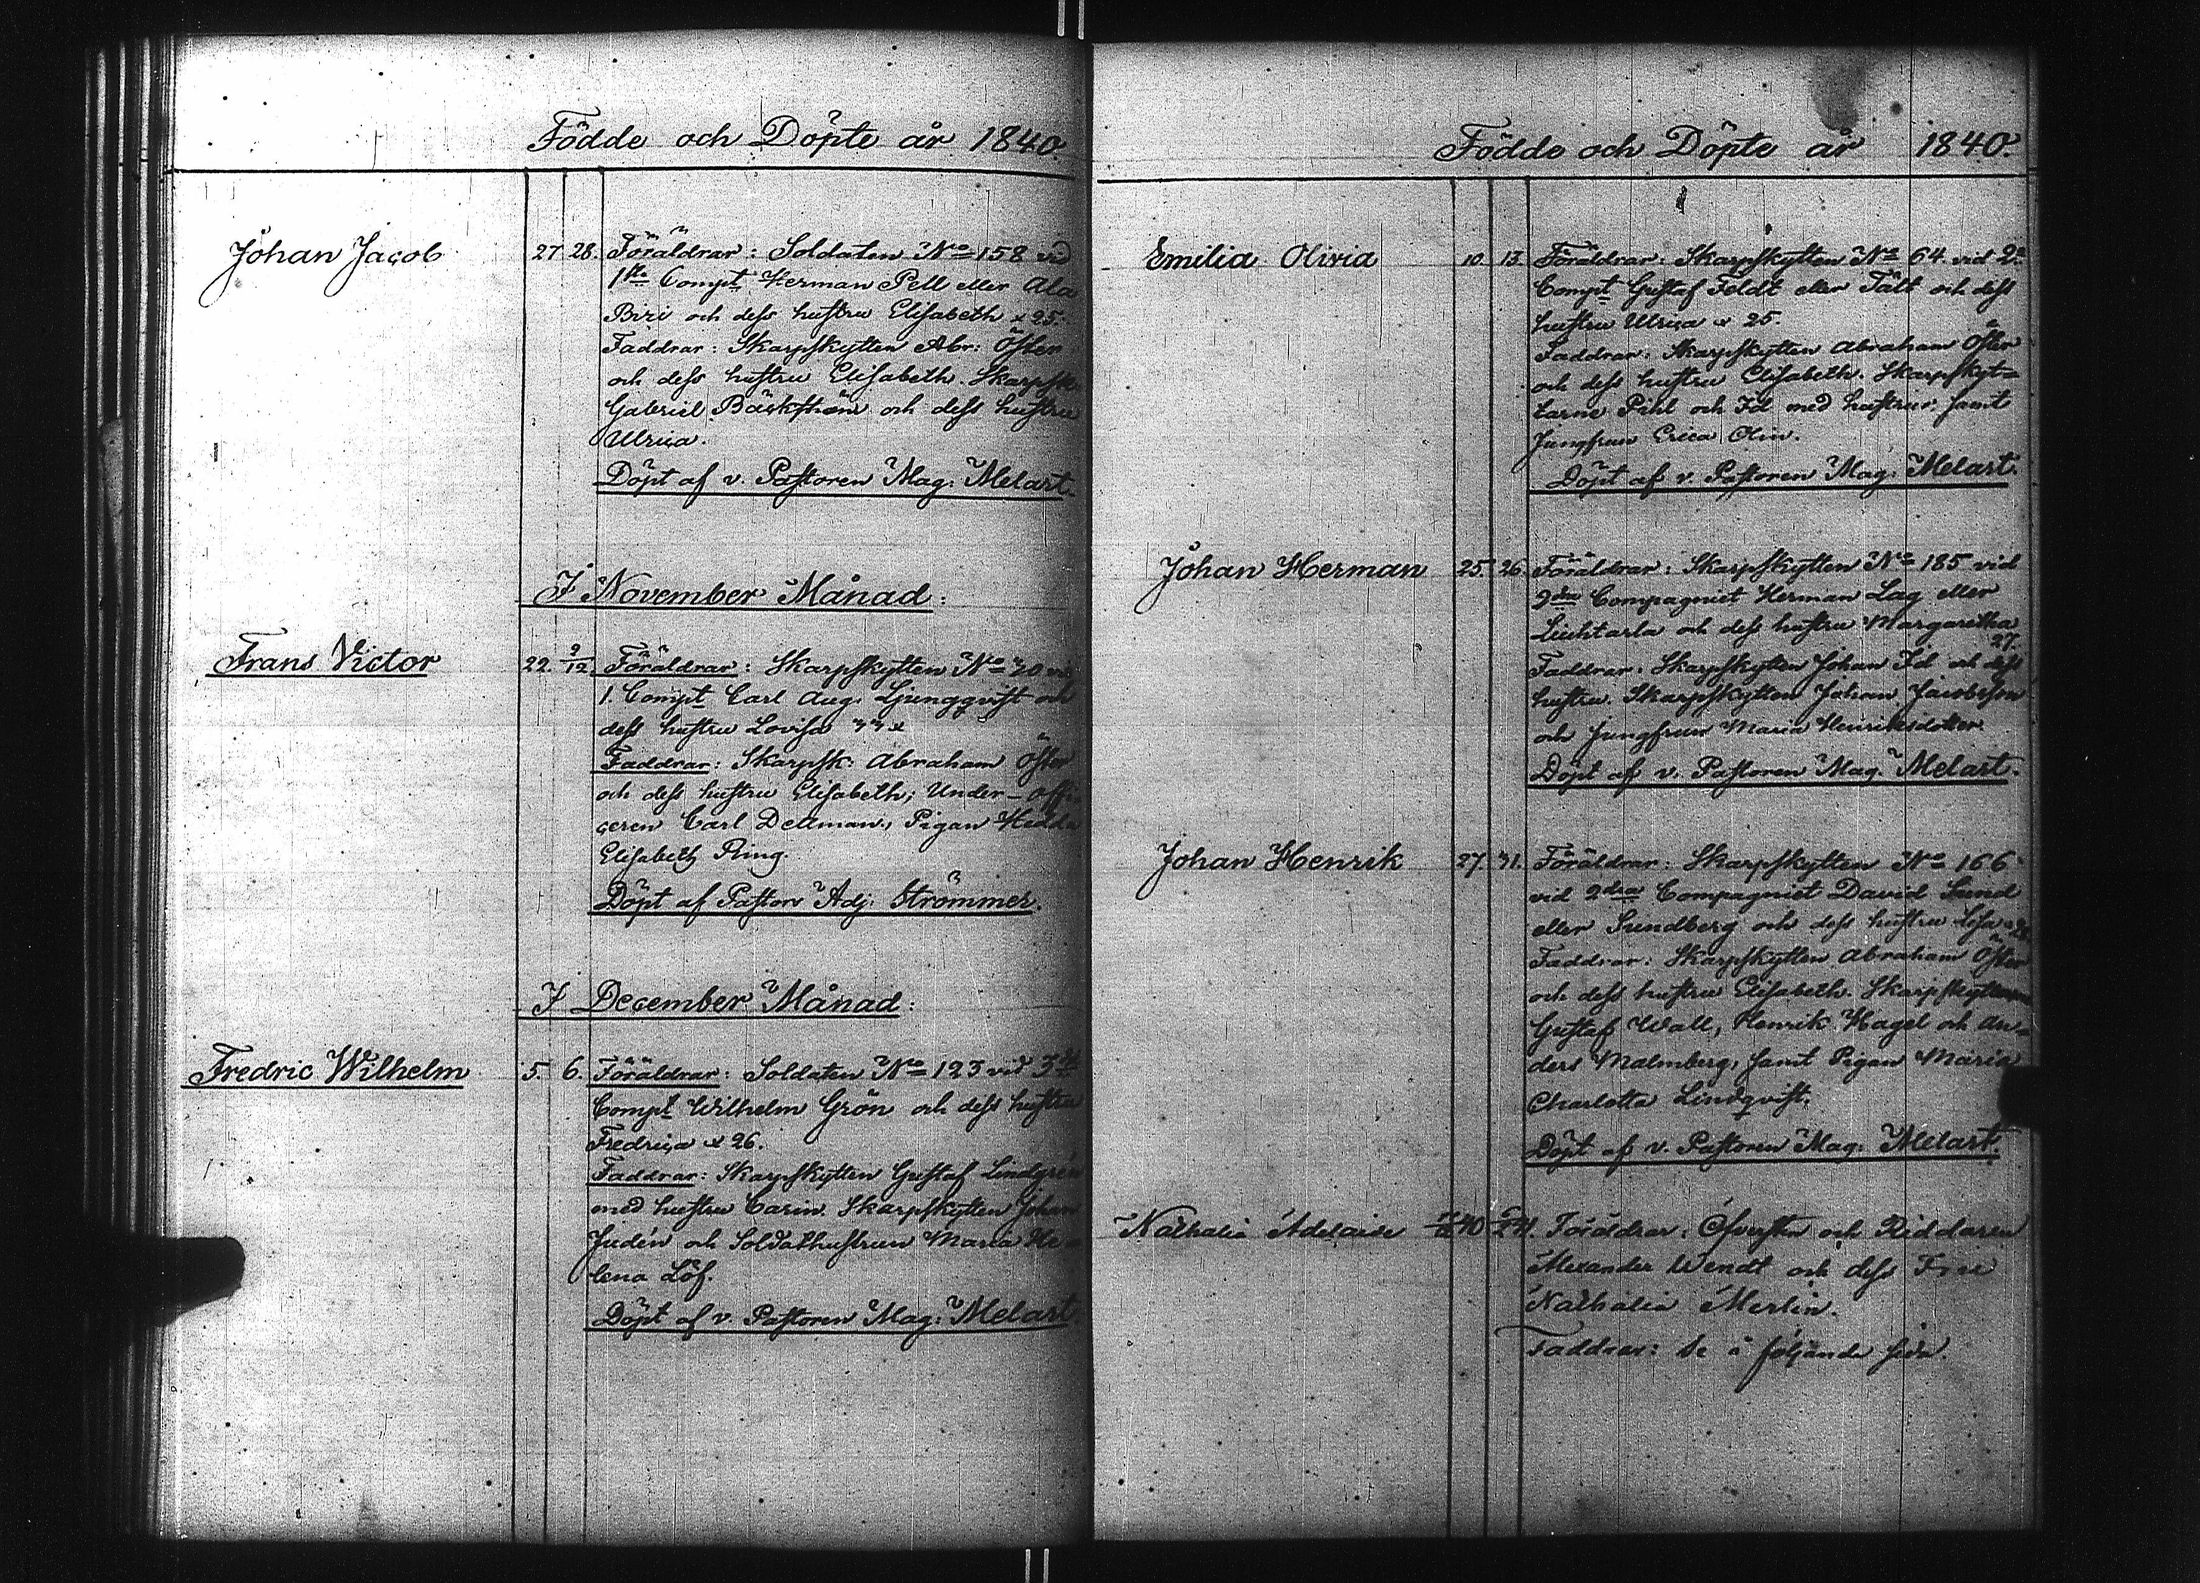 Födde och Döpte år 1840.
Johan Jacob 27 28. Föräldrar: Soldaten No 158 vid
1sta Compt Herman Pell eller Ala
Biri och dess hustru Elisabeth x 25.
Faddrar: Skarpskytten Abr: Öster
och dess hustru Elisabeth. Skarpsk
Gabriel Bäckström och dess hustru
Ulrica.
Döpt af v. Pastoren Mag: Melart.
I November Månad:
Frans Victor 22. 2/12 Föräldrar: Skarpskytten No 30 vid
1. Compt Carl Aug. Ljungqvist och
dess hustru Lovisa 33 x
Faddrar: Skarpsk: Abraham Öster
och dess hustru Elisabeth; Under-offi
ceren Carl Dellman, Pigan Hedda
Elisabeth Ring.
Döpt af Pastors Adj: Strömmer.
I December Månad:
Fredric Wilhelm 5. 6. Föräldrar: Soldaten No 123 vid 3de
Compt Wilhelm Grön och dess hustru
Fredrica x 26.
Faddrar: Skarpskytten Gustaf Lindgren
med hustru Carin. Skarpskytten Johan
Judén och Soldathustrun Maria He
lena Löf.
Döpt af v. Pastoren Mag: Melart
Födde och Döpte år 1840.
Emilia Olivia 10. 13. Föräldrar: Skarpskytten No 64 vid 2a
Compt Gustaf Feldt eller Tält och dess
hustru Ulrica x 25.
Faddrar: Skarpskytten Abraham Öster
och dess hustru Elisabeth. Skarpskyt=
tarne Pihl och Id med hustrur samt
Jungfrun Erica Olin.
Döpt af v. Pastoren Mag: Melart.
Johan Herman 25. 26. Föräldrar: Skarpskytten No 185 vid
2dra Compagniet Herman Lag eller
Liuhtarla och dess hustru Margaretha
27.
Faddrar: Skarpskytten Johan Id och dess
hustru. Skarpskytten Johan Jacobsson
och Jungfrun Maria Henriksdotter.
Döpt af v. Pastoren Mag. Melart.
Johan Henrik 27. 31. Föräldrar: Skarpskytten No 166
vid 2dra Compagniet David Sund
eller Sundberg och dess hustru Lisa
Faddrar: Skarpskytten Abraham Öster
och dess hustru Elisabeth. Skarpskyttarne
Gustaf Wall, Henrik Hagel och An=
ders Malmberg, samt Pigan Maria
Charlotta Lindqvist.
Döpt af v. Pastoren Mag: Melart.
Nathalia Adelaide 40 41. Föräldrar: Öfversten och Riddaren
Alexander Wendt och dess Fru
Nathalia Merlin.
Faddrar: Se å följande sida.